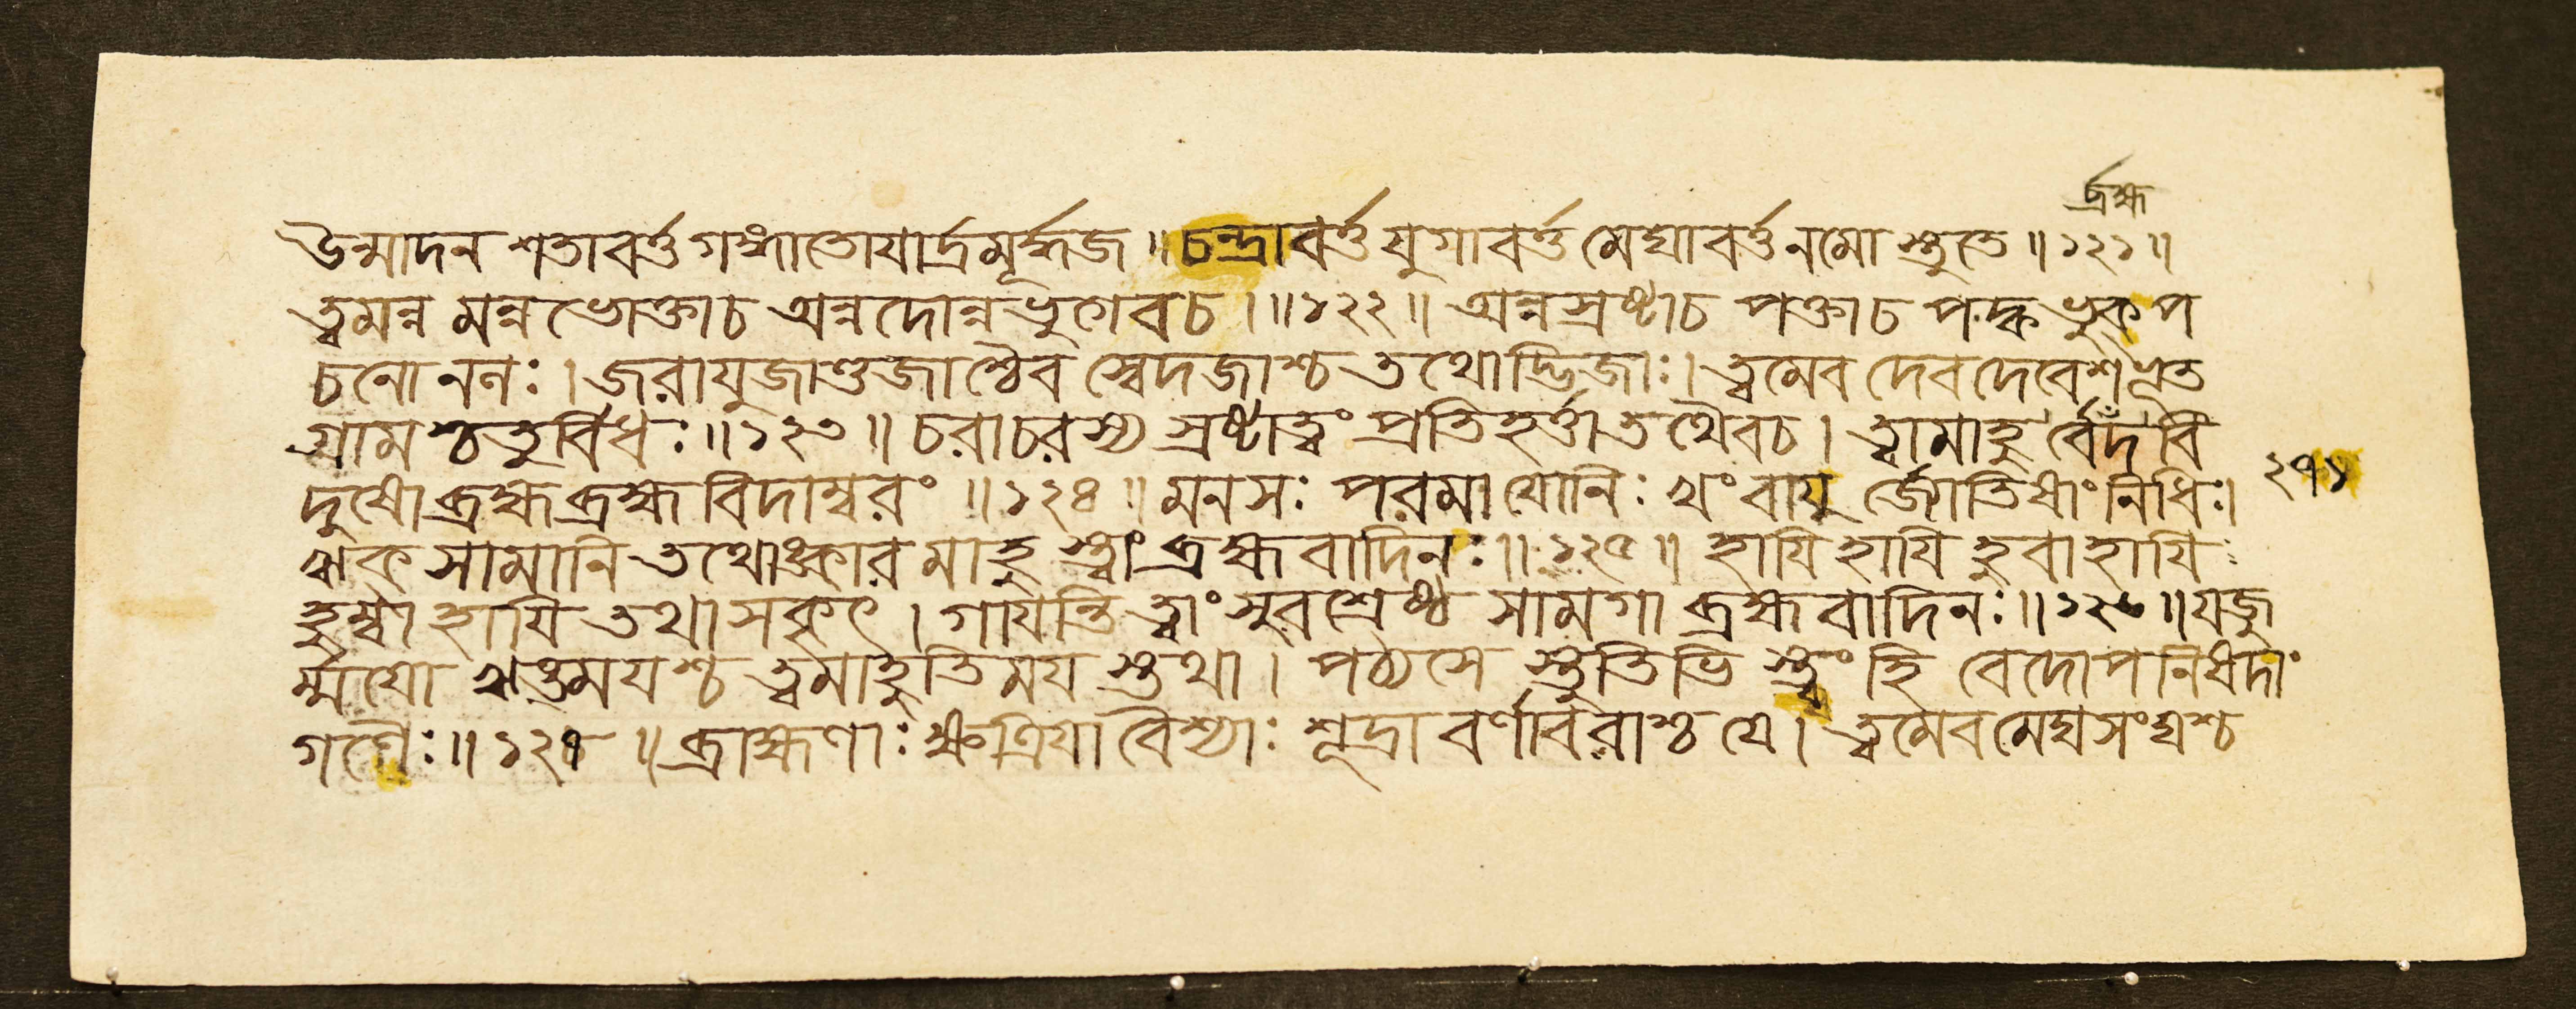 ব্রহ্ম
উন্মাদন শতাবর্ত্ত গঙ্গাতোযার্দ্রমূর্দ্ধজ ॥ চন্দ্রাবর্ত্ত যুগাবর্ত্ত মেঘাবর্ত্ত নমোস্তুতে ॥ ১২১ ॥
ত্বমন্ন মন্ন ভোক্তাচ অন্নদোন্নভুগেবচ । ॥ ১২২ ॥ অন্নস্রষ্টাচ পক্তাচ পক্বভুক প
চনোনলঃ । জরাযুজাণ্ডজাশ্চৈব স্বেদজাশ্চ তথোদ্ভিজাঃ । ত্বমেব দেবদেবেশ ভূত
গ্রামশ্চতুর্বিধঃ ॥ ১২৩ ॥ চরাচরস্য স্রষ্টাত্বং প্রতিহর্ত্তা তথৈবচ । ত্বামাহু র্বেদবি
দুষো ব্রহ্ম ব্রহ্মবিদাম্বরং ॥ ১২৪ ॥ মনসঃ পরমাযোনিঃ খং বাযু র্জোতিষাং নিধিঃ ।
২৭১
ঋক সামানি তথোঙ্কার মাহু স্ত্বাং ব্রহ্মবাদিনঃ ॥ ১২৫ ॥ হাযি হাযি হুবা হাযি
হুম্বা হাযি তথা সকৃৎ । গাযন্তি ত্বাং সুরশ্রেষ্ঠ সামগা ব্রহ্মবাদিনঃ ॥ ১২৬ ॥ যজু
র্ম্মযো ঋত্তমযশ্চ ত্বমাহুতিময স্তথা । পঠ্যসে স্তুতিভি স্ত্বং হি বেদোপনিষদাং
গণৈঃ ॥ ১২৭ ॥ ব্রাহ্মণাঃ ক্ষত্রিযা বৈশ্যাঃ শূদ্রা বর্ণাবরাশ্চ যে । ত্বমেব মেঘসংঘশ্চ